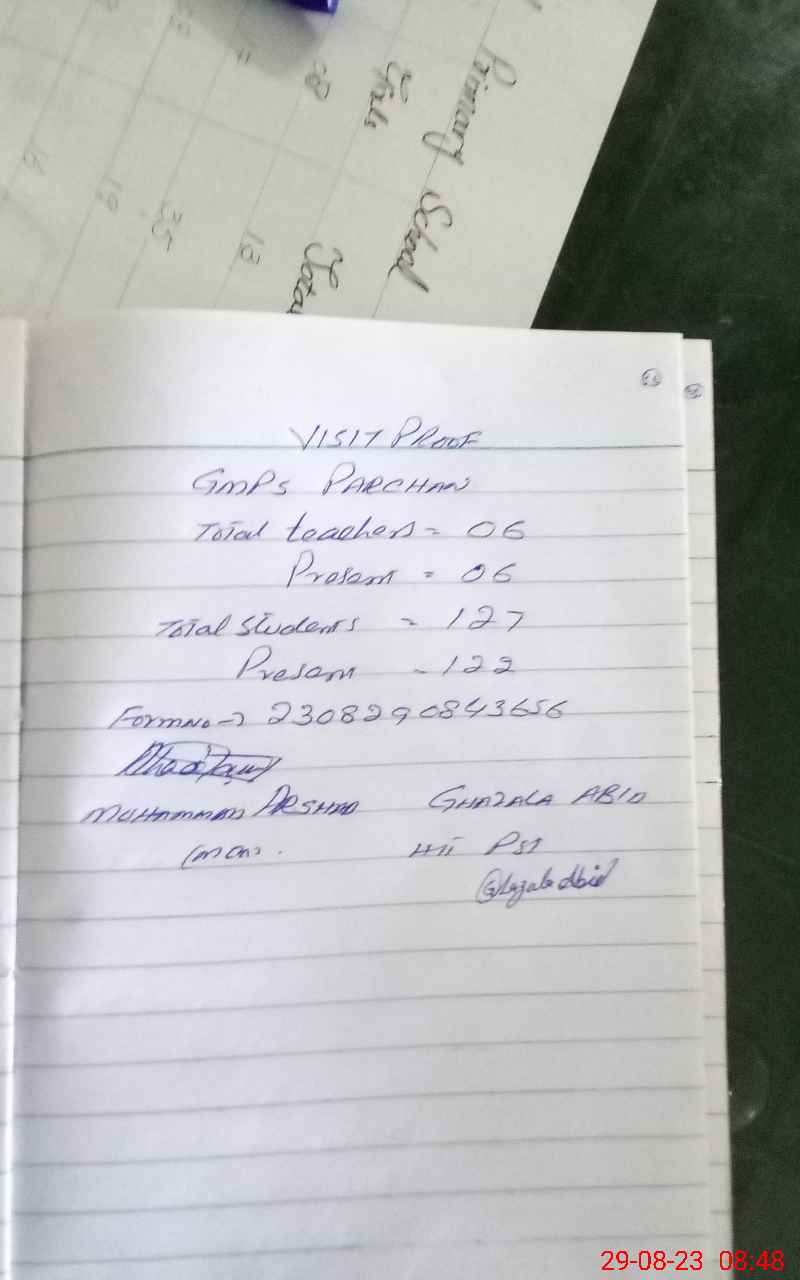 Primary School
Girls Total
18
35
19
VISIT PROOF
GMPS PARCHAN
Total teachers = 06
Present = 06
Total Students = 127
Present = 122
Form No → 2308290843656
MUHAMMAD ARSHAD GHAZALA ABID
HT PST
Ghazala Abid
29-08-23 08:48